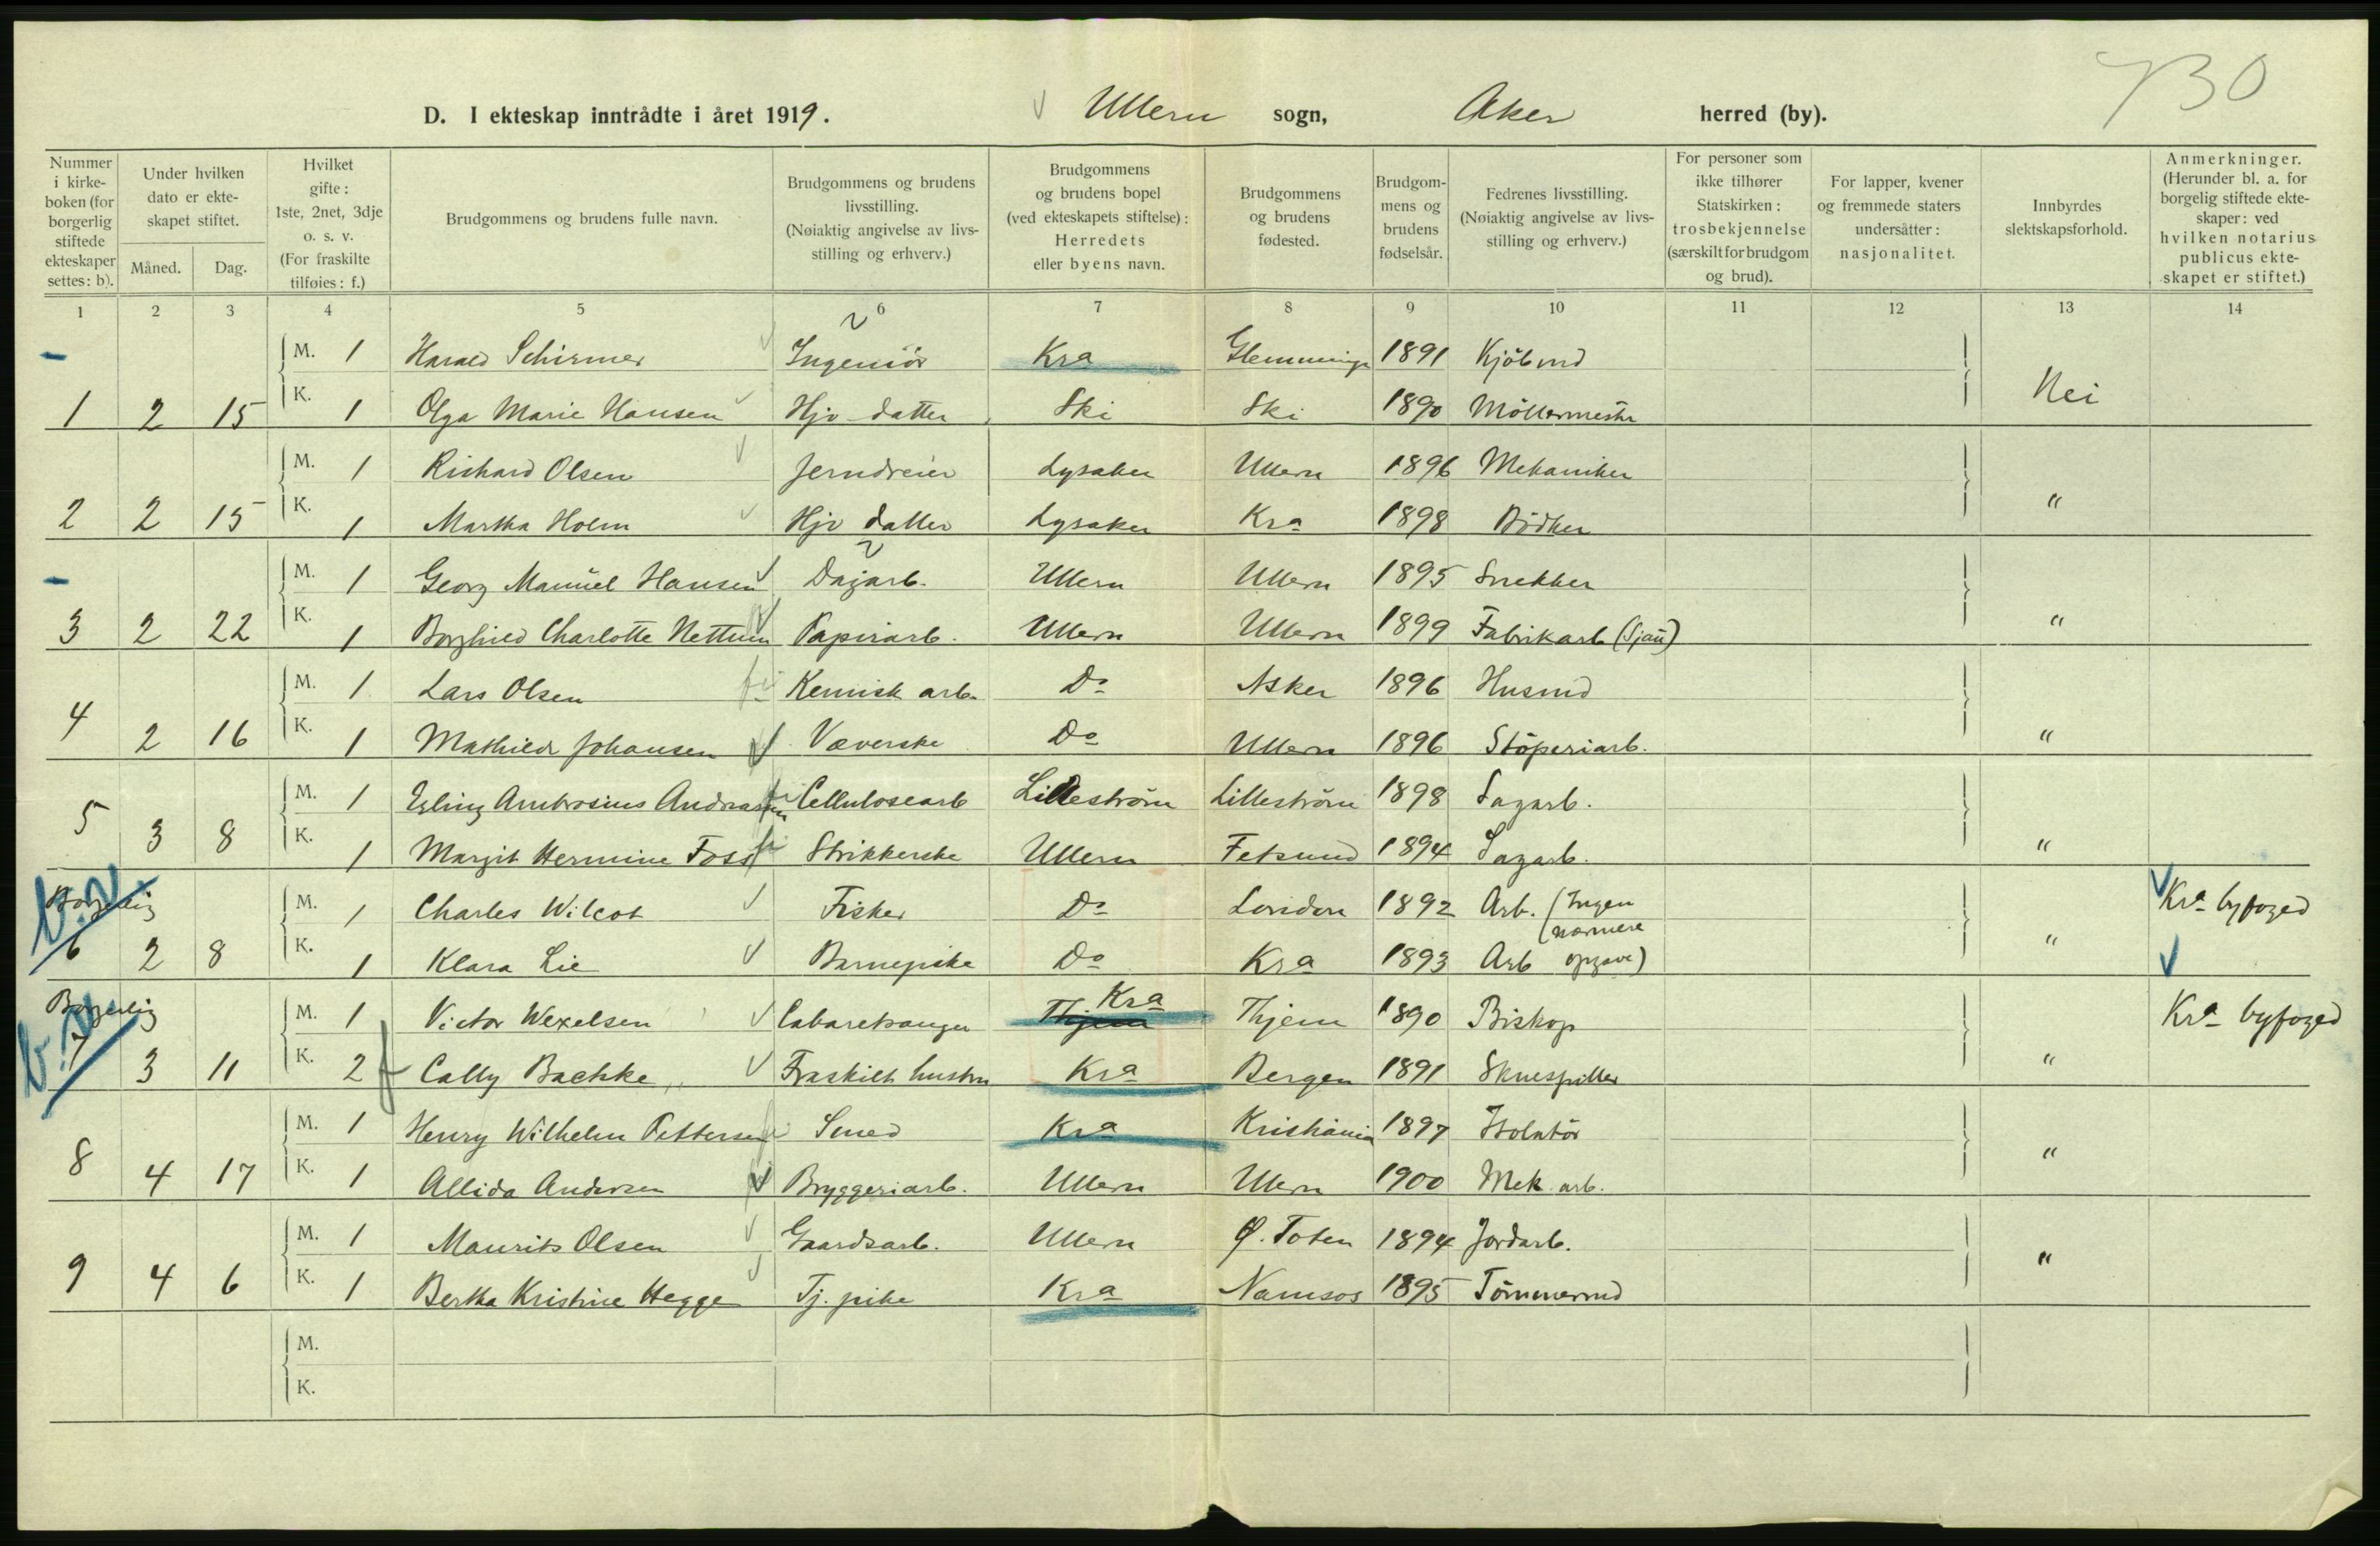 730
D. I ekteskap inntrådte i året 1919. Ullern sogn, Aker herred (by).
Nummer i kirke-boken (for borgerlig stiftede ekteskaper settes: b).
Under hvilken dato er ekte-skapet stiftet.
Måned. Dag.
Hvilket gifte: 1ste, 2net, 3dje o. s. v. (For fraskilte tilføies: f.)
Brudgommens og brudens fulle navn.
Brudgommens og brudens livsstilling. (Nøiaktig angivelse av livs-stilling og erhverv.)
Brudgommens og brudens bopel (ved ekteskapets stiftelse): Herredets eller byens navn.
Brudgommens og brudens fødested.
Brudgom-mens og brudens fødselsår.
Fedrenes livsstilling. (Nøiaktig angivelse av livs-stilling og erhverv.)
For personer som ikke tilhører Statskirken: trosbekjennelse (særskilt for brudgom og brud).
For lapper, kvener og fremmede staters undersåtter: nasjonalitet.
Innbyrdes slektskapsforhold.
Anmerkninger. (Herunder bl. a. for borgelig stiftede ekte-skaper: ved hvilken notarius publicus ekte-skapet er stiftet.)
1 2 3 4 5 6 7 8 9 10 11 12 13 14
M. 1 Harald Schirmer Ingeniör Kra Glemminge 1891 Kjöbmd
1 2 15 K. 1 Olga Marie Hansen Hjv datter Ski Ski 1890 Möllermestr Nei
M. 1 Richard Olsen Jerndreier Lysaker Ullern 1896 Mekaniker
2 2 15 K. 1 Martha Holm Hjv datter Lysaker Kra 1898 Bödker "
M. 1 Georg Manuel Hansen Dagarb. Ullern Ullern 1895 Snekker
3 2 22 K. 1 Borghild Charlotte Nettum Papirarb. Ullern Ullern 1899 Fabrikarb (Sjau) "
M. 1 Lars Olsen Kemisk arb. Do Asker 1896 Husmd
4 2 16 K. 1 Mathilde Johansen Væverske Do Ullern 1896 Stöperiarb. "
M. 1 Erling Ambrosius Andreassen Cellulosearb Lilleström Lilleström 1898 Sagarb.
5 3 8 K. 1 Margit Hermine Foss Strikkerske Ullern Fetsund 1894 Sagarb. "
Borgerlig M. 1 Charles Wilcot Fisker Do London 1892 Arb. (Ingen nærmere Kra byfoged
6 2 8 K. 1 Klara Lie Barnepike Do Kra 1893 Arb opgave) "
Borgerlig M. 1 Victor Wexelsen Cabaretsanger Thjem Kra Thjem 1890 Biskop Kra byfoged
7 3 11 K. 2 f Cally Bachke Fraskilt hustru Kra Bergen 1891 Skuespiller "
M. 1 Henry Wilhelm Pettersen Smed Kra Kristiania 1897 Isolatör
8 4 17 K. 1 Allida Andersen Bryggeriarb. Ullern Ullern 1900 Mek. arb. "
M. 1 Maurits Olsen Gaardsarb. Ullern Ø. Toten 1894 Jordarb.
9 4 6 K. 1 Bertha Kristine Hegge Tj. pike Kra Namsos 1895 Tömmermd "
M.
K.